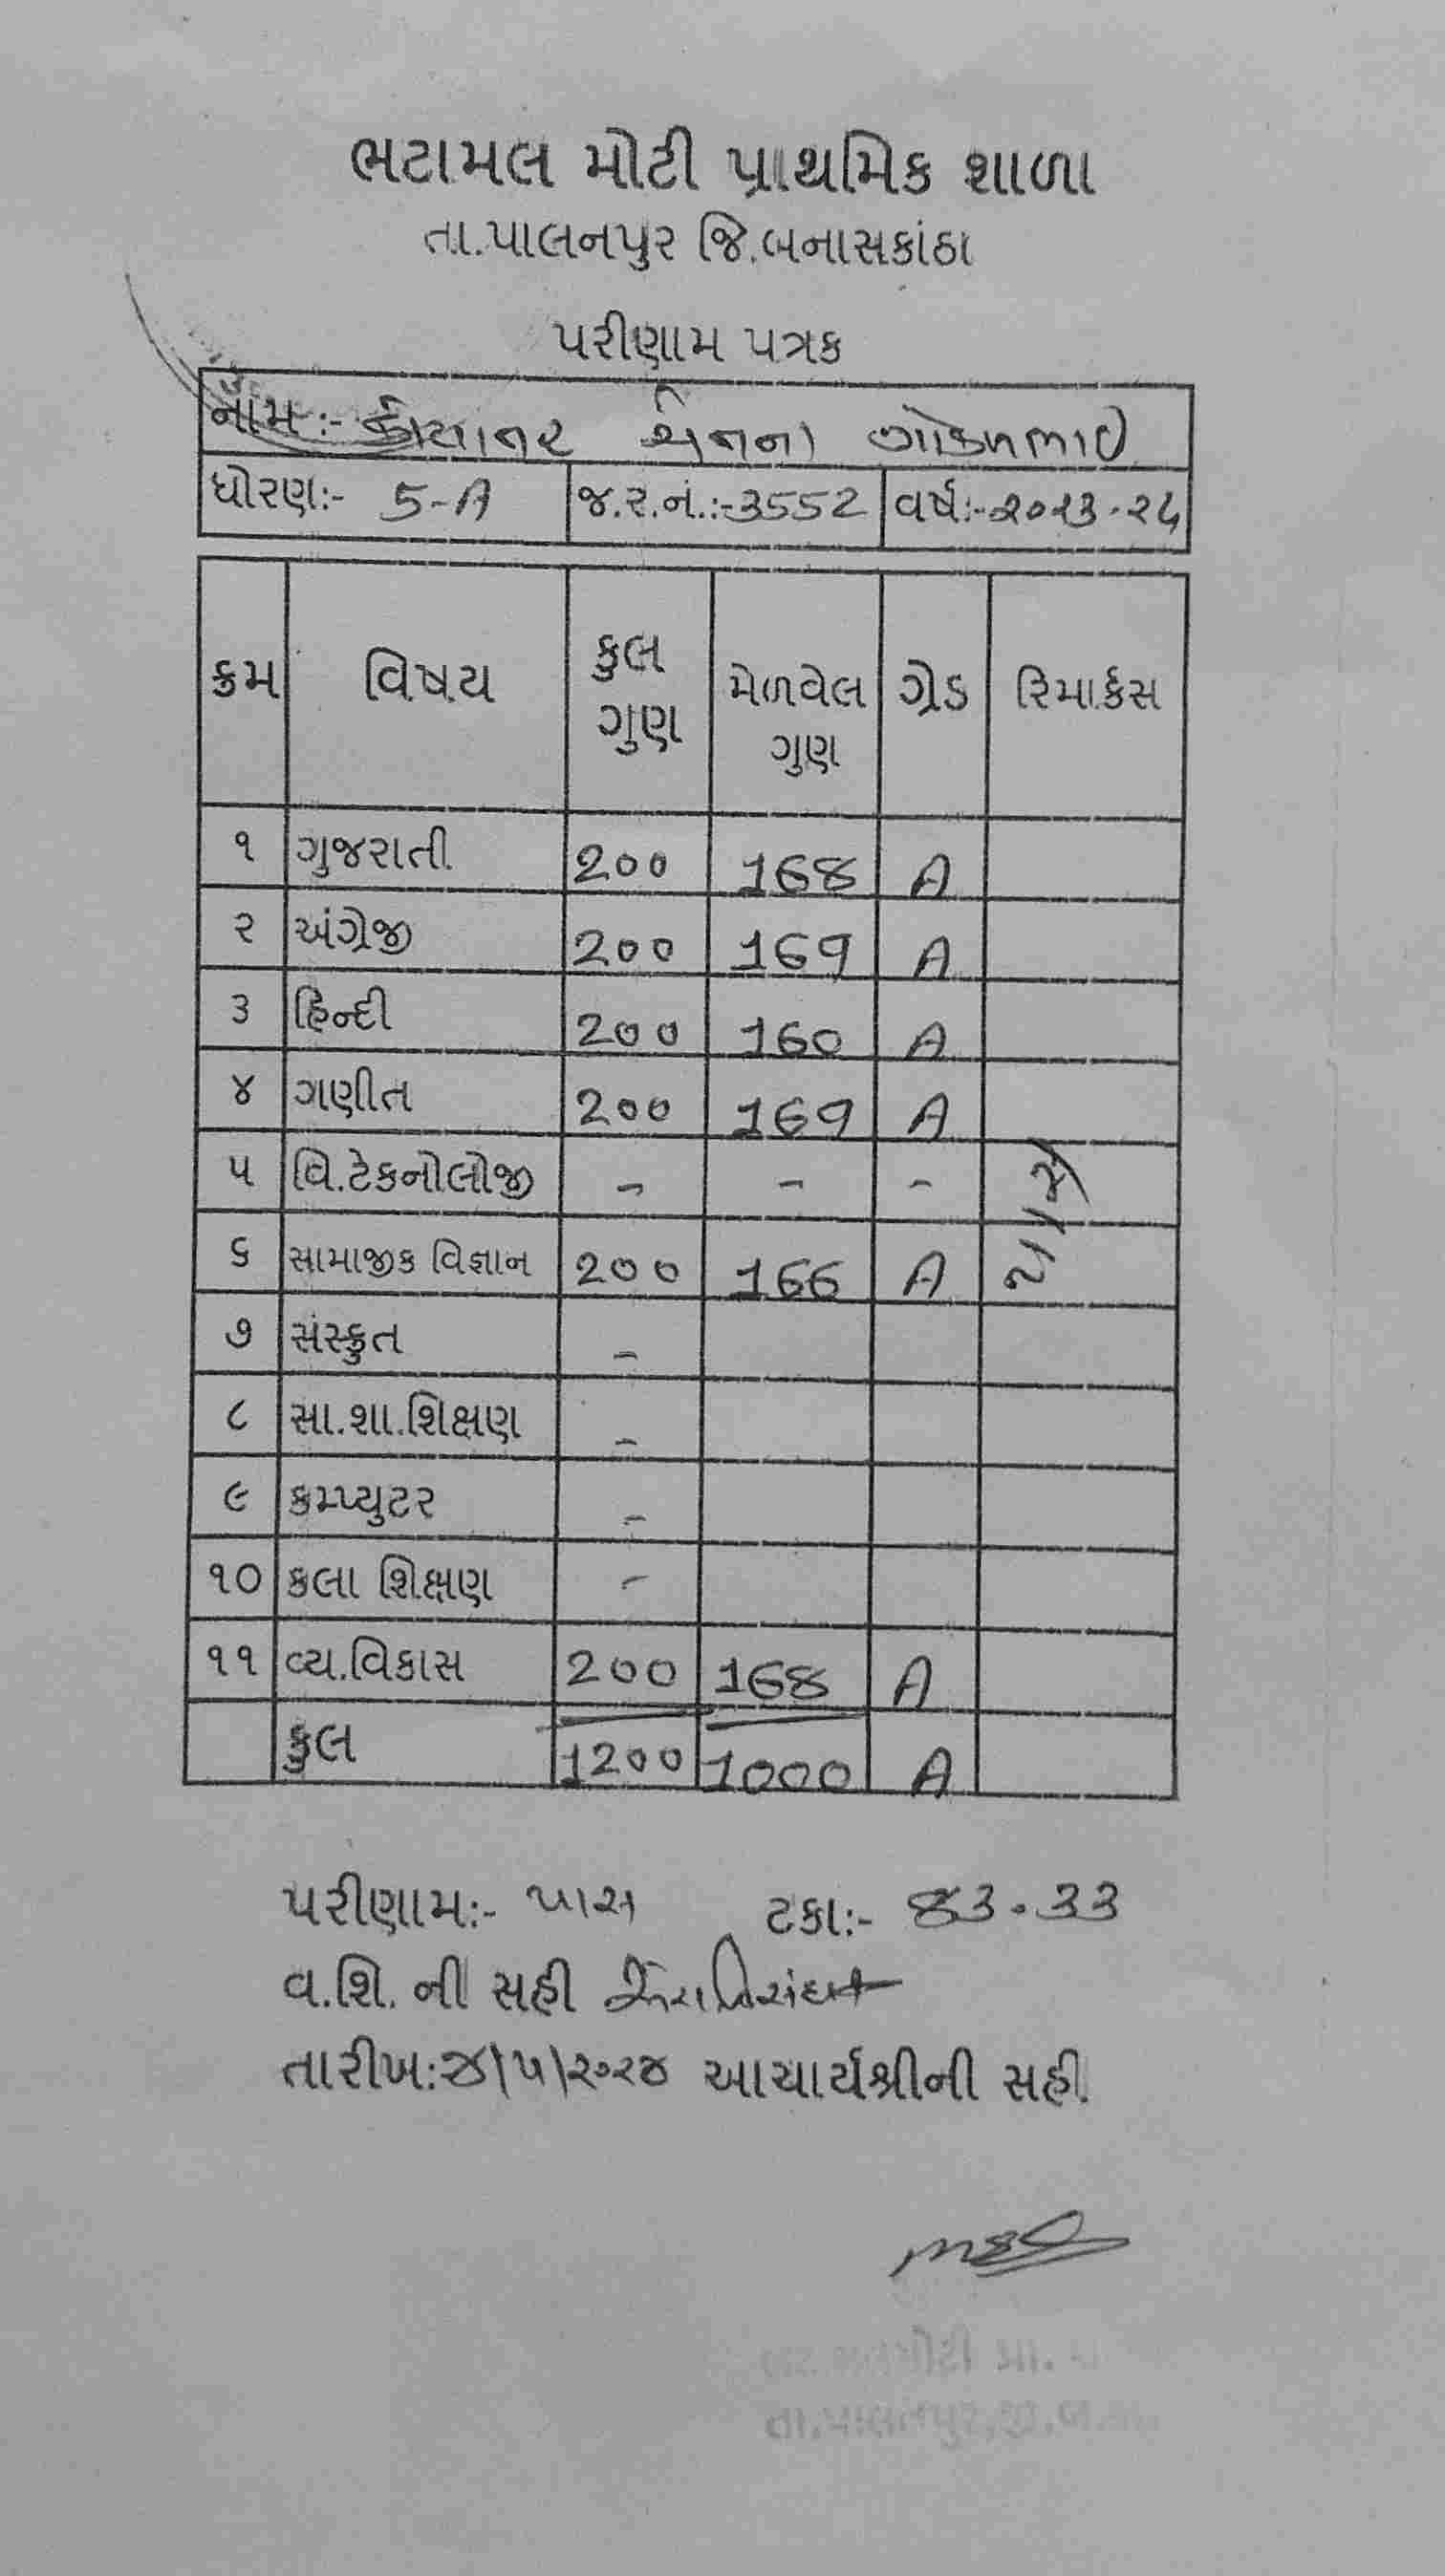 ભટામલ મોટી પ્રાથમિક શાળા
તા.પાલનપુર જિ.બનાસકાંઠા
પરીણામ પત્રક
નામ:- ગોકળભાઇ
ધોરણ:- 5-A જ.ર.નં.:-3552 વર્ષ:-૨૦૨૩-૨૪
ક્રમ વિષય કુલ ગુણ મેળવેલ ગુણ ગ્રેડ રિમાર્કસ
૧ ગુજરાતી 200 168 A
૨ અંગ્રેજી 200 169 A
૩ હિન્દી 200 160 A
૪ ગણીત 200 169 A
૫ વિ.ટેકનોલોજી - - -
૬ સામાજીક વિજ્ઞાન 200 166 A
૭ સંસ્કૃત -
૮ સા.શા.શિક્ષણ -
૯ કમ્પ્યુટર -
૧૦ કલા શિક્ષણ -
૧૧ વ્ય.વિકાસ 200 168 A
કુલ 1200 1000 A
પરીણામ:- પાસ ટકા:- 83.33
વ.શિ. ની સહી
તારીખ:૪\૫\૨૦૨૪ આચાર્યશ્રીની સહી.